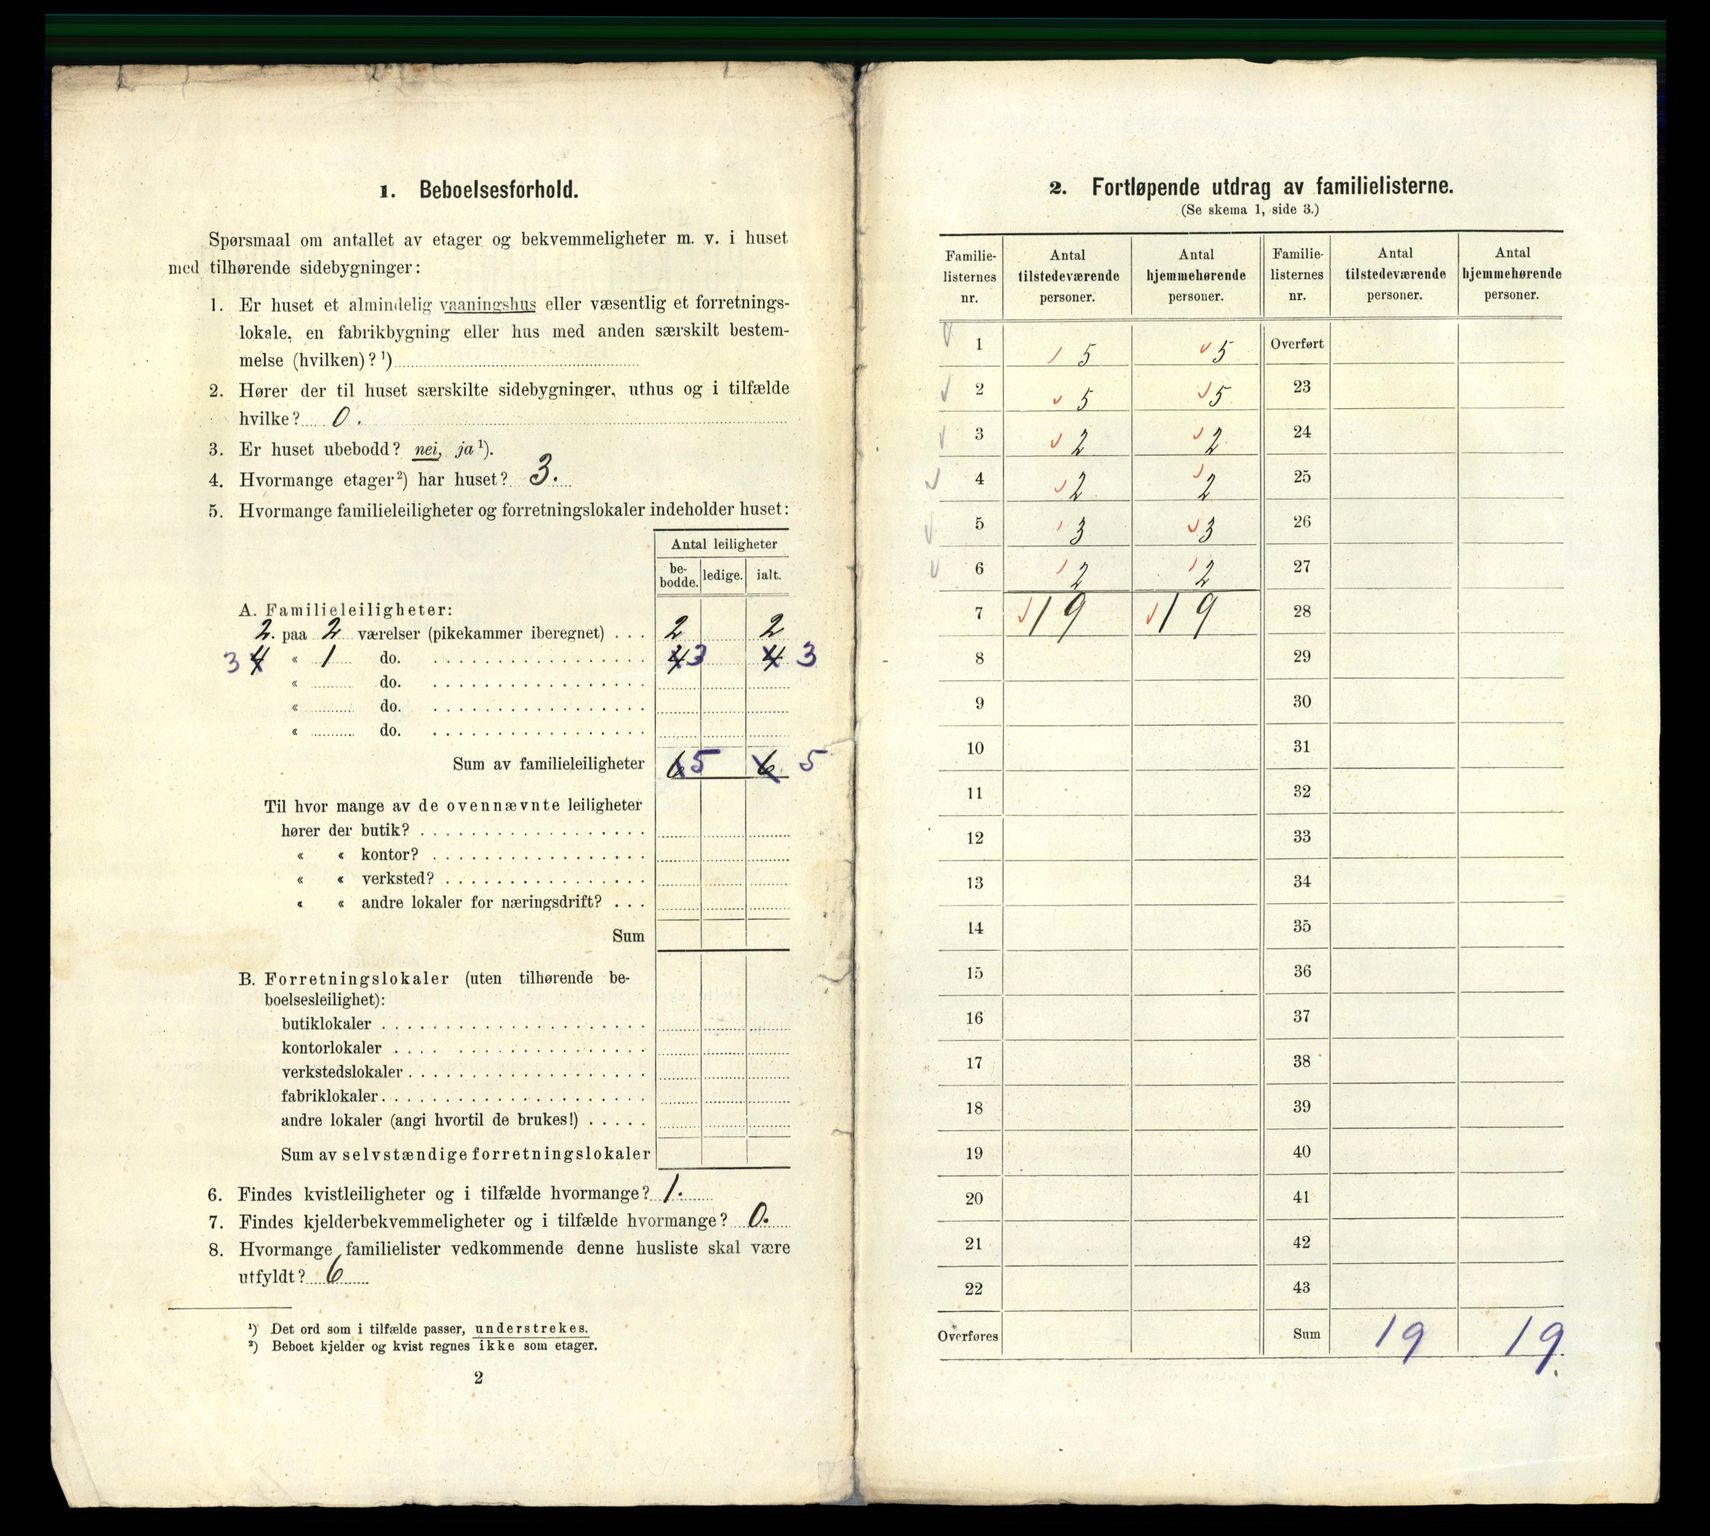 1. Beboelsesforhold.
Spørsmaal om antallet av etager og bekvemmeligheter m. v. i huset
med tilhørende sidebygninger:
1. Er huset et almindelig vaaningshus eller væsentlig et forretnings-
lokale, en fabrikbygning eller hus med anden særskilt bestem-
melse (hvilken)? ¹)
2. Hører der til huset særskilte sidebygninger, uthus og i tilfælde
hvilke? 0.
3. Er huset ubebodd? nei, ja ¹).
4. Hvormange etager ²) har huset? 3.
5. Hvormange familieleiligheter og forretningslokaler indeholder huset:
Antal leiligheter
be-bodde. ledige. ialt.
A. Familieleiligheter:
2. paa 2 værelser (pikekammer iberegnet) . . . 2 2
3 4 « 1 do. 4 3 4 3
« do.
« do.
« do.
Sum av familieleiligheter 6 5 6 5
Til hvor mange av de ovennævnte leiligheter
hører der butik?
« « kontor?
« « verksted?
« « andre lokaler for næringsdrift? . . .
Sum
B. Forretningslokaler (uten tilhørende be-
boelsesleilighet):
butiklokaler
kontorlokaler
verkstedslokaler
fabriklokaler
andre lokaler (angi hvortil de brukes!)
Sum av selvstændige forretningslokaler
6. Findes kvistleiligheter og i tilfælde hvormange? 1.
7. Findes kjelderbekvemmeligheter og i tilfælde hvormange? 0.
8. Hvormange familielister vedkommende denne husliste skal være
utfyldt? 6
¹) Det ord som i tilfælde passer, understrekes.
²) Beboet kjelder og kvist regnes ikke som etager.
2
2. Fortløpende utdrag av familielisterne.
(Se skema 1, side 3.)
Familie-listernes nr. Antal tilstedeværende personer. Antal hjemmehørende personer. Familie-listernes nr. Antal tilstedeværende personer. Antal hjemmehørende personer.
1 5 5 Overført
2 5 5 23
3 2 2 24
4 2 2 25
5 3 3 26
6 2 2 27
7 19 19 28
8 29
9 30
10 31
11 32
12 33
13 34
14 35
15 36
16 37
17 38
18 39
19 40
20 41
21 42
22 43
Overføres Sum 19 19.